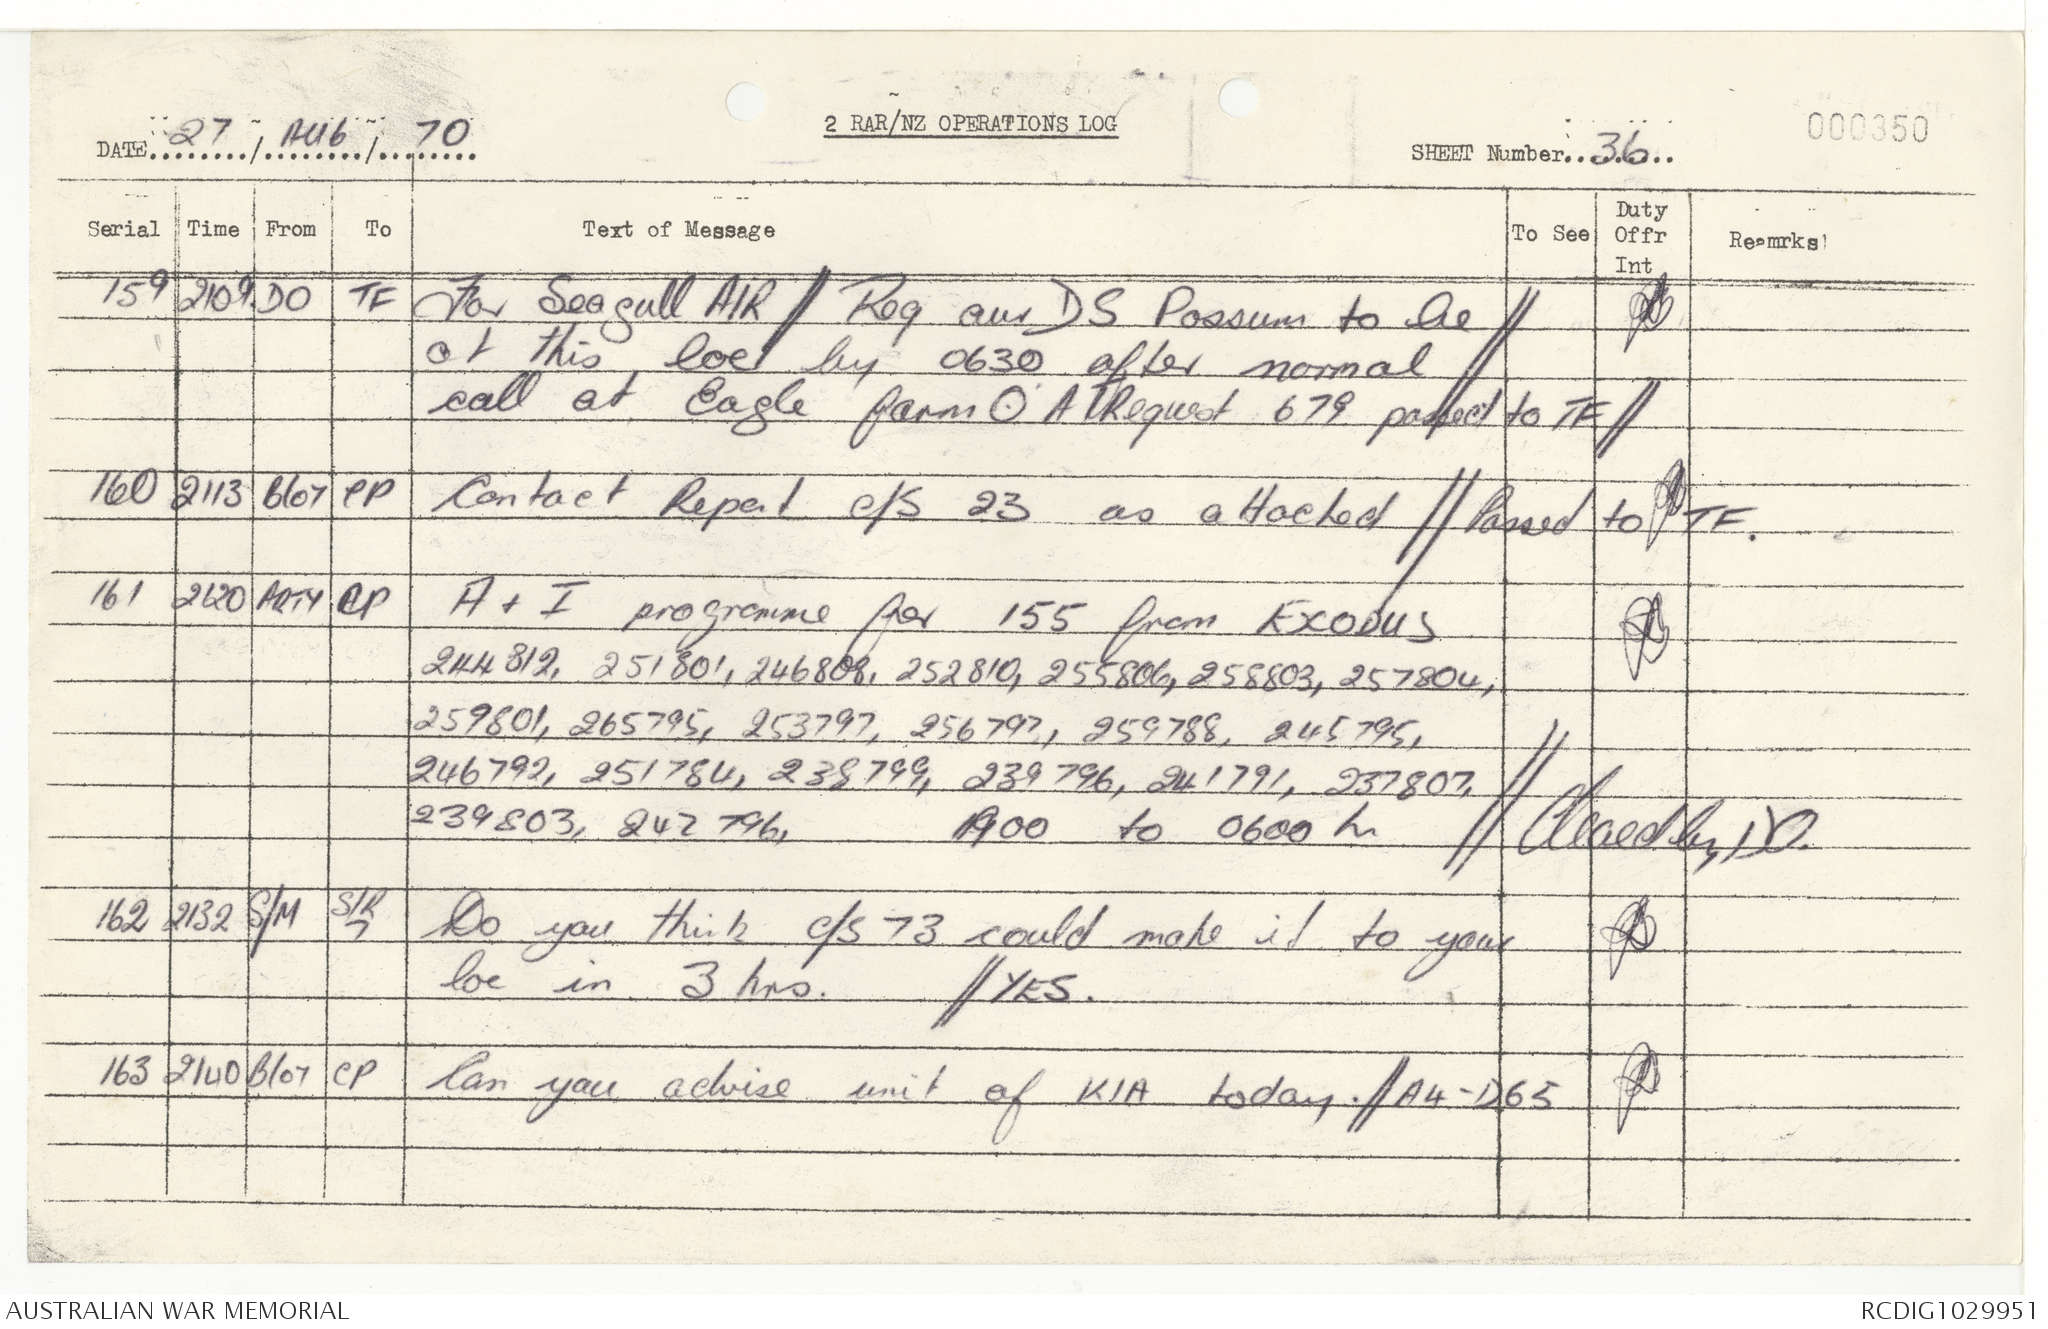 000350
DATE 27 / AUG / 70
2 RAR/NZ OPERATIONS LOG
SHEET Number 36
Serial Time From To Text of Message To See Duty Offr Int Remrks
159 2109 DO TF For Seagull AIR // Req our DS Possum to be //
at this loc by 0630 after normal
call at Eagle farm O AT Request 679 passed to TF //
160 2113 Blot CP Contact Report c/s 23 as attached // Passed to TF.
161 2120 ARTY CP H + I programme for 155 from EXODUS
244812, 251801, 246808, 252810, 255806, 258803, 257804,
259801, 265795, 253797, 256797, 259788, 245795,
246792, 251784, 238799, 239796, 241791, 237807,
239803, 242796, 1900 to 0600 hr // DO.
162 2132 S/M S/R 7 Do you think c/s 73 could make it to your
loc in 3 hrs. // YES.
163 2140 Blot CP Can you advise unit of KIA today. // A4-D65
AUSTRALIAN WAR MEMORIAL
RCDIG1029951